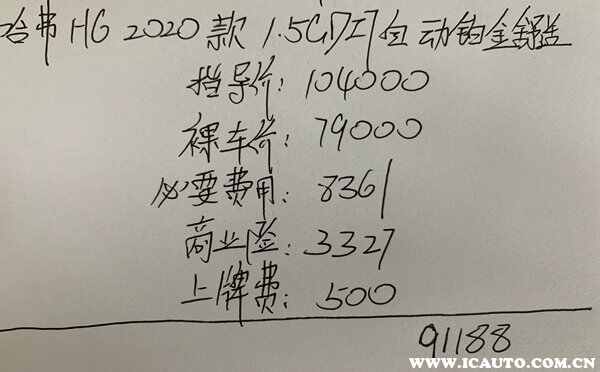 哈弗H6 2020款 1.5GDIT自动铂金舒适
指导价: 104000
裸车价: 79000
必要费用: 8361
商业险: 3327
上牌费: 500
91188
WWW.ICAUTO.COM.CN